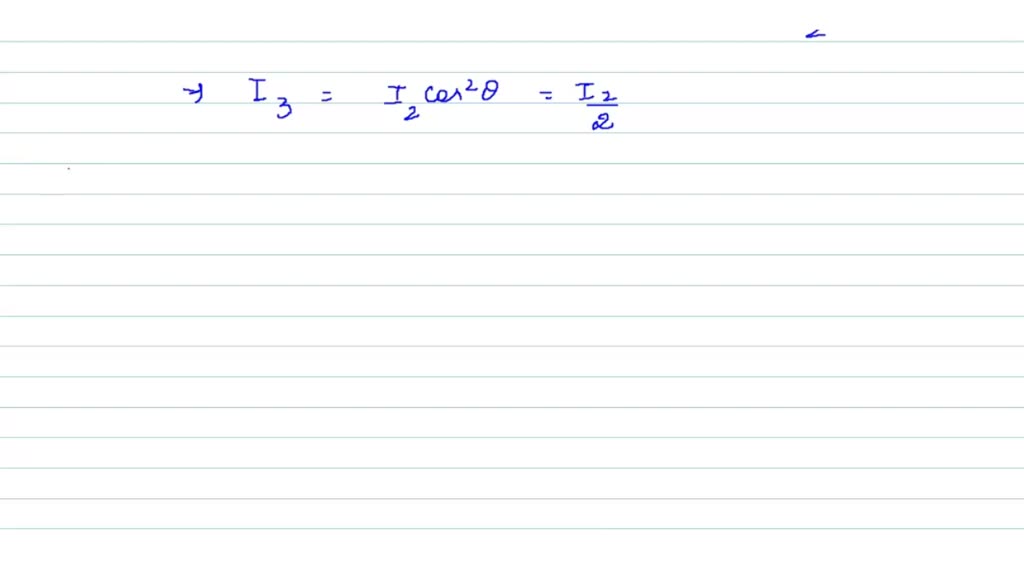 → I₃ = I₂ cos²θ = I₂/2